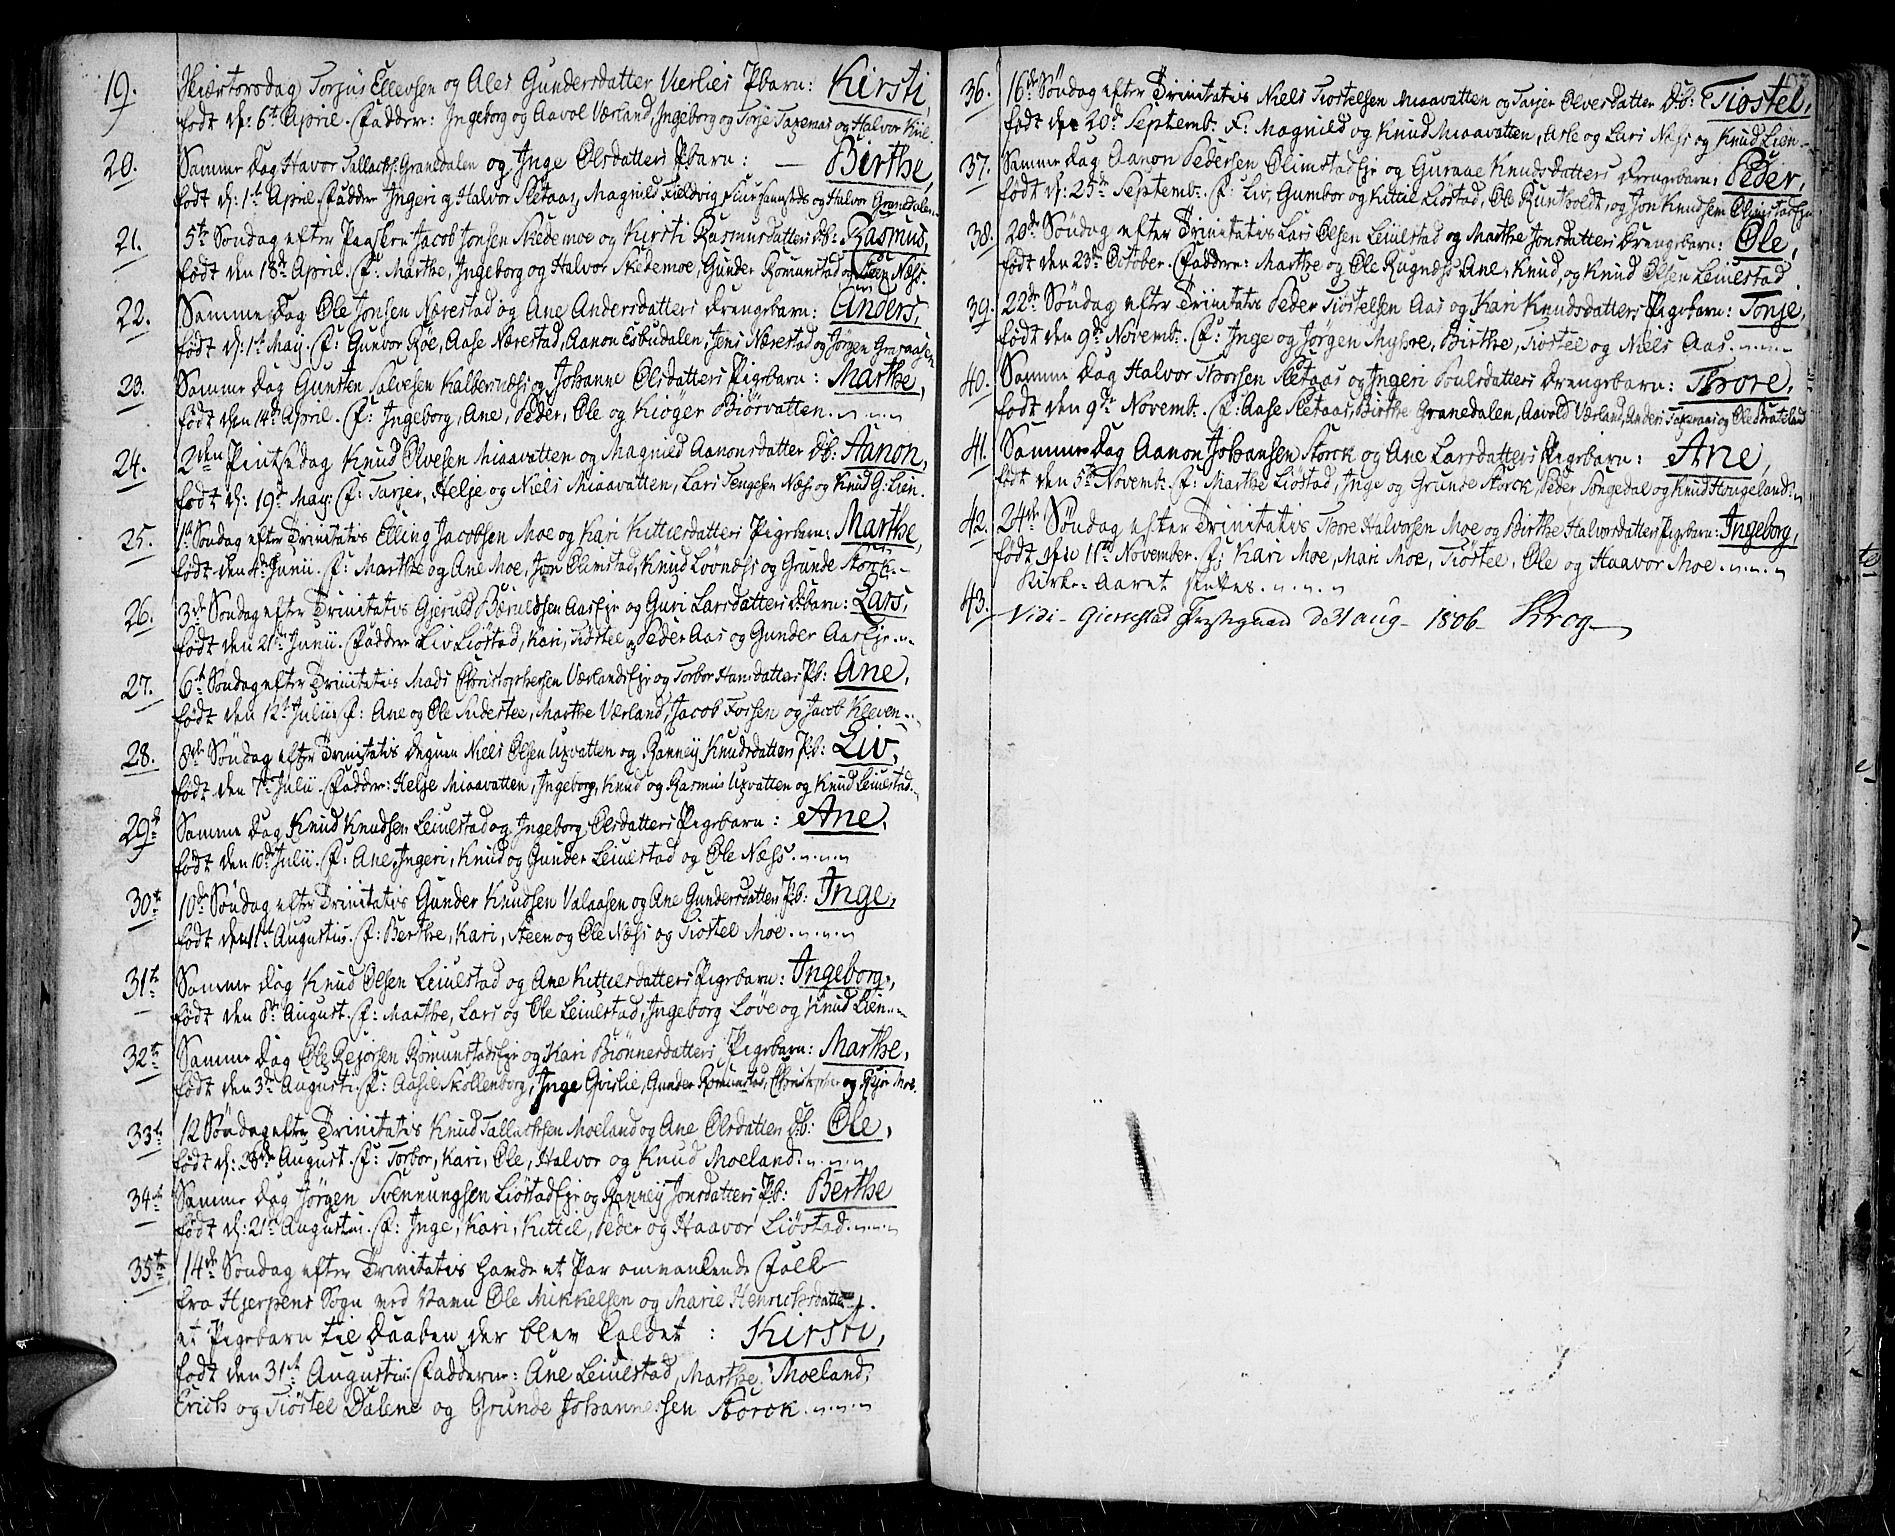 19. Skiærtorsdag Torjus Ellevsen og Ales Gundersdatter Vierlies Pbarn: Kirsti,
født d: 6te April. Faddere: Ingeborg og Aavol Værland, Ingeborg og Torje Taxeraas og Halvor
20. Samme Dag Havor Tallachs. Granedalen og Inge Olsdatters Pbarn: Birthe,
født d: 1te April. Faddere Ingeri og Halvor Sletaas, Magnild og Halvor Granedalen
21. 5te Søndag efter Paasken Jacob Jonsen Skedemoe og Kirsti Rasmusdatters Db: Rasmus,
født den 18de April. F: Marthe, Ingeborg og Halvor Skedemoe, Gunder Romunstad, og Steen Næss.
22. Samme Dag Ole Jonsen Nærestad og Ane Andersdatters Drengebarn: Anders,
født d: 1te May. F: Gunvor Roe, Aase Nærestad, Aanon Esbudalen, Jens Nærestad og Jørgen Graaasen
23. Samme Dag Gunsten Salvesen Kalbernæss og Johanne Olsdatters Pigebarn: Marthe,
født den 14de April. F: Ingeborg, Ane, Peder, Ole og Kiøger Biørvatten
24. 2den Pintsedag Knud Olvesen Miaavatten og Magnild Aanonsdatter Db: Aanon,
født d: 19de May. F: Tarjer, Helje og Niels Miaavatten, Lars Tengesen Næss og Knud G: Lien.
25. 1te Søndag efter Trinitatis Elling Jacobsen Moe og Kari Kittilsdatters Pigebarn: Marthe,
født den 4de Junii. F: Marthe og Ane Moe, Jon Olimstad, Knud Løvnæss og Grunde Storck
26. 3de Søndag efter Trinitatis Gjeruld Bæruldsen AasEje og Guri Larsdatters Dbarn: Lars,
født den 21de Junii. Faddere Liv Liøstad, Kari, Tiøstel og Peder Aas og Gunder AasEje
27. 6te Søndag efter Trinitatis Mads Christophersen VærlandsEje og Torbor Hansdatters Pb: Ane,
født den 12te Julii F: Ane og Ole Sidestel, Marthe Værland, Jacob Forsen og Jacob Kleven
28. 8de Søndag efter Trinitatis Degnen Niels Olsen Uxvatten og Ranney Knudsdatters Pb: Liv,
født den 7de Julii Faddere: Helje Miaavatten, Ingeborg, Knud og Rasmus Uxvatten og Knud Leiulstad
29de Samme Dag Knud Knudsen Leiulstad og Ingeborg Olsdatters Pigebarn: Ane.
født den 10de Julii. F: Ane, Ingeri, Knud og Gunder Leiulstad og Ole Næss
30te 10de Søndag efter Trinitatis Gunder Knudsen Valaasen og Ane Gundersdatters Pb: Inge,
født den 1te Augustus. F: Berthe, Kari, Steen og Ole Næss og Tiøstel Moe
31te Samme Dag Knud Olsen Leiulstad og Ane Kittilsdatters Pigebarn: Ingeborg,
født den 8de August. F: Marthe, Lars og Ole Leiulstad, Ingeborg Løve og Knud Lien
32te Samme Dag Ole Rejorsen RomunstadsEje og Kari Biønnersdatters Pigebarn: Marthe,
født den 3de Augusti F: Aasil Skollenborg, Inge Qvislie, Gunder Romunstad, Christopher og Rejor Moe.
33te 12 Søndag efter Trinitatis Knud Tallachsen Moeland og Ane Olsdatters Db: Ole,
født d: 30de August. F: Torbor, Kari, Ole, Halvor og Knud Moeland
34te Samme Dag Jørgen Svennungsen LiøstadEje og Ranney Jonsdatters Pb: Berthe
født d: 21de Augustus. F: Inge, Kari, Kittil, Peder og Haavor Liøstad
35te 14de Søndag efter Trinitatis havde et Par omvankende Folk
fra Hjerpens Sogn ved Navn Ole Mikkelsen og Marie Henrichsdatter
et Pigebarn til Daaben der blev kaldet: Kirsti,
født den 31te Augustus Faddere: Ane Leiulstad, Marthe Moeland,
Erich og Tiøstel Dalene og Grunde Johannesen Storck
36. 16de Søndag efter Trinitatis Niels Tiøstelsen Miaavatten og Tarjer Olvesdatter Db: Tiøstel,
født den 20de Septemb: F: Magnild og Knud Miaavatten, Asle og Lars Næss og Knud Lien
37. Samme Dag Aanon Pedersen OlimstadEje og Guraae Knudsdatters Drengebarn: Peder,
født d: 25de Septemb: F: Liv, Gumbor og Kittil Liøstad, Ole Runtholdt, og Jon Knudsen OlimstadEje
38. 20de Søndag efter Trinitatis Lars Olsen Leiulstad og Marthe Jonsdatters Drengebarn: Ole,
født den 23de October. Faddere: Marthe og Ole Rugnæss, Ane, Knud, og Knud Olsen Leiulstad
39. 22de Søndag efter Trinitatis Peder Tiøstelsen Aas og Kari Knudsdatters Pigebarn: Tonje,
født den 9de Novemb. F: Inge og Jørgen Myhre, Birthe, Tiøstel og Niels Aas
40. Samme Dag Halvor Thorsen Sletaas og Ingeri Poulsdatters Drengebarn: Thore,
født den 9de Novemb. F: Aase Sletaas, Birthe Granedalen, Aavold Værland, Anders Taxeraas og Ole Brateland
41. Samme Dag Aanon Johansen Storck og Ane Larsdatters Pigebarn: Ane,
født den 5te Novemb: F: Marthe Liøstad, Inge og Grunde Storck, Peder Songedal og Knud Hougeland
42. 24de Søndag efter Trinitatis Thore Halvorsen Moe og Birthe Halvorsdatters Pigebarn: Ingeborg,
født den 11te November. F: Kari Moe, Mari Moe, Tiøstel, Ole og Haavor Moe
Kirke-Aaret sluttes
43. Vidi Gierrestad Præstegaard d 31 aug 1806 Krog